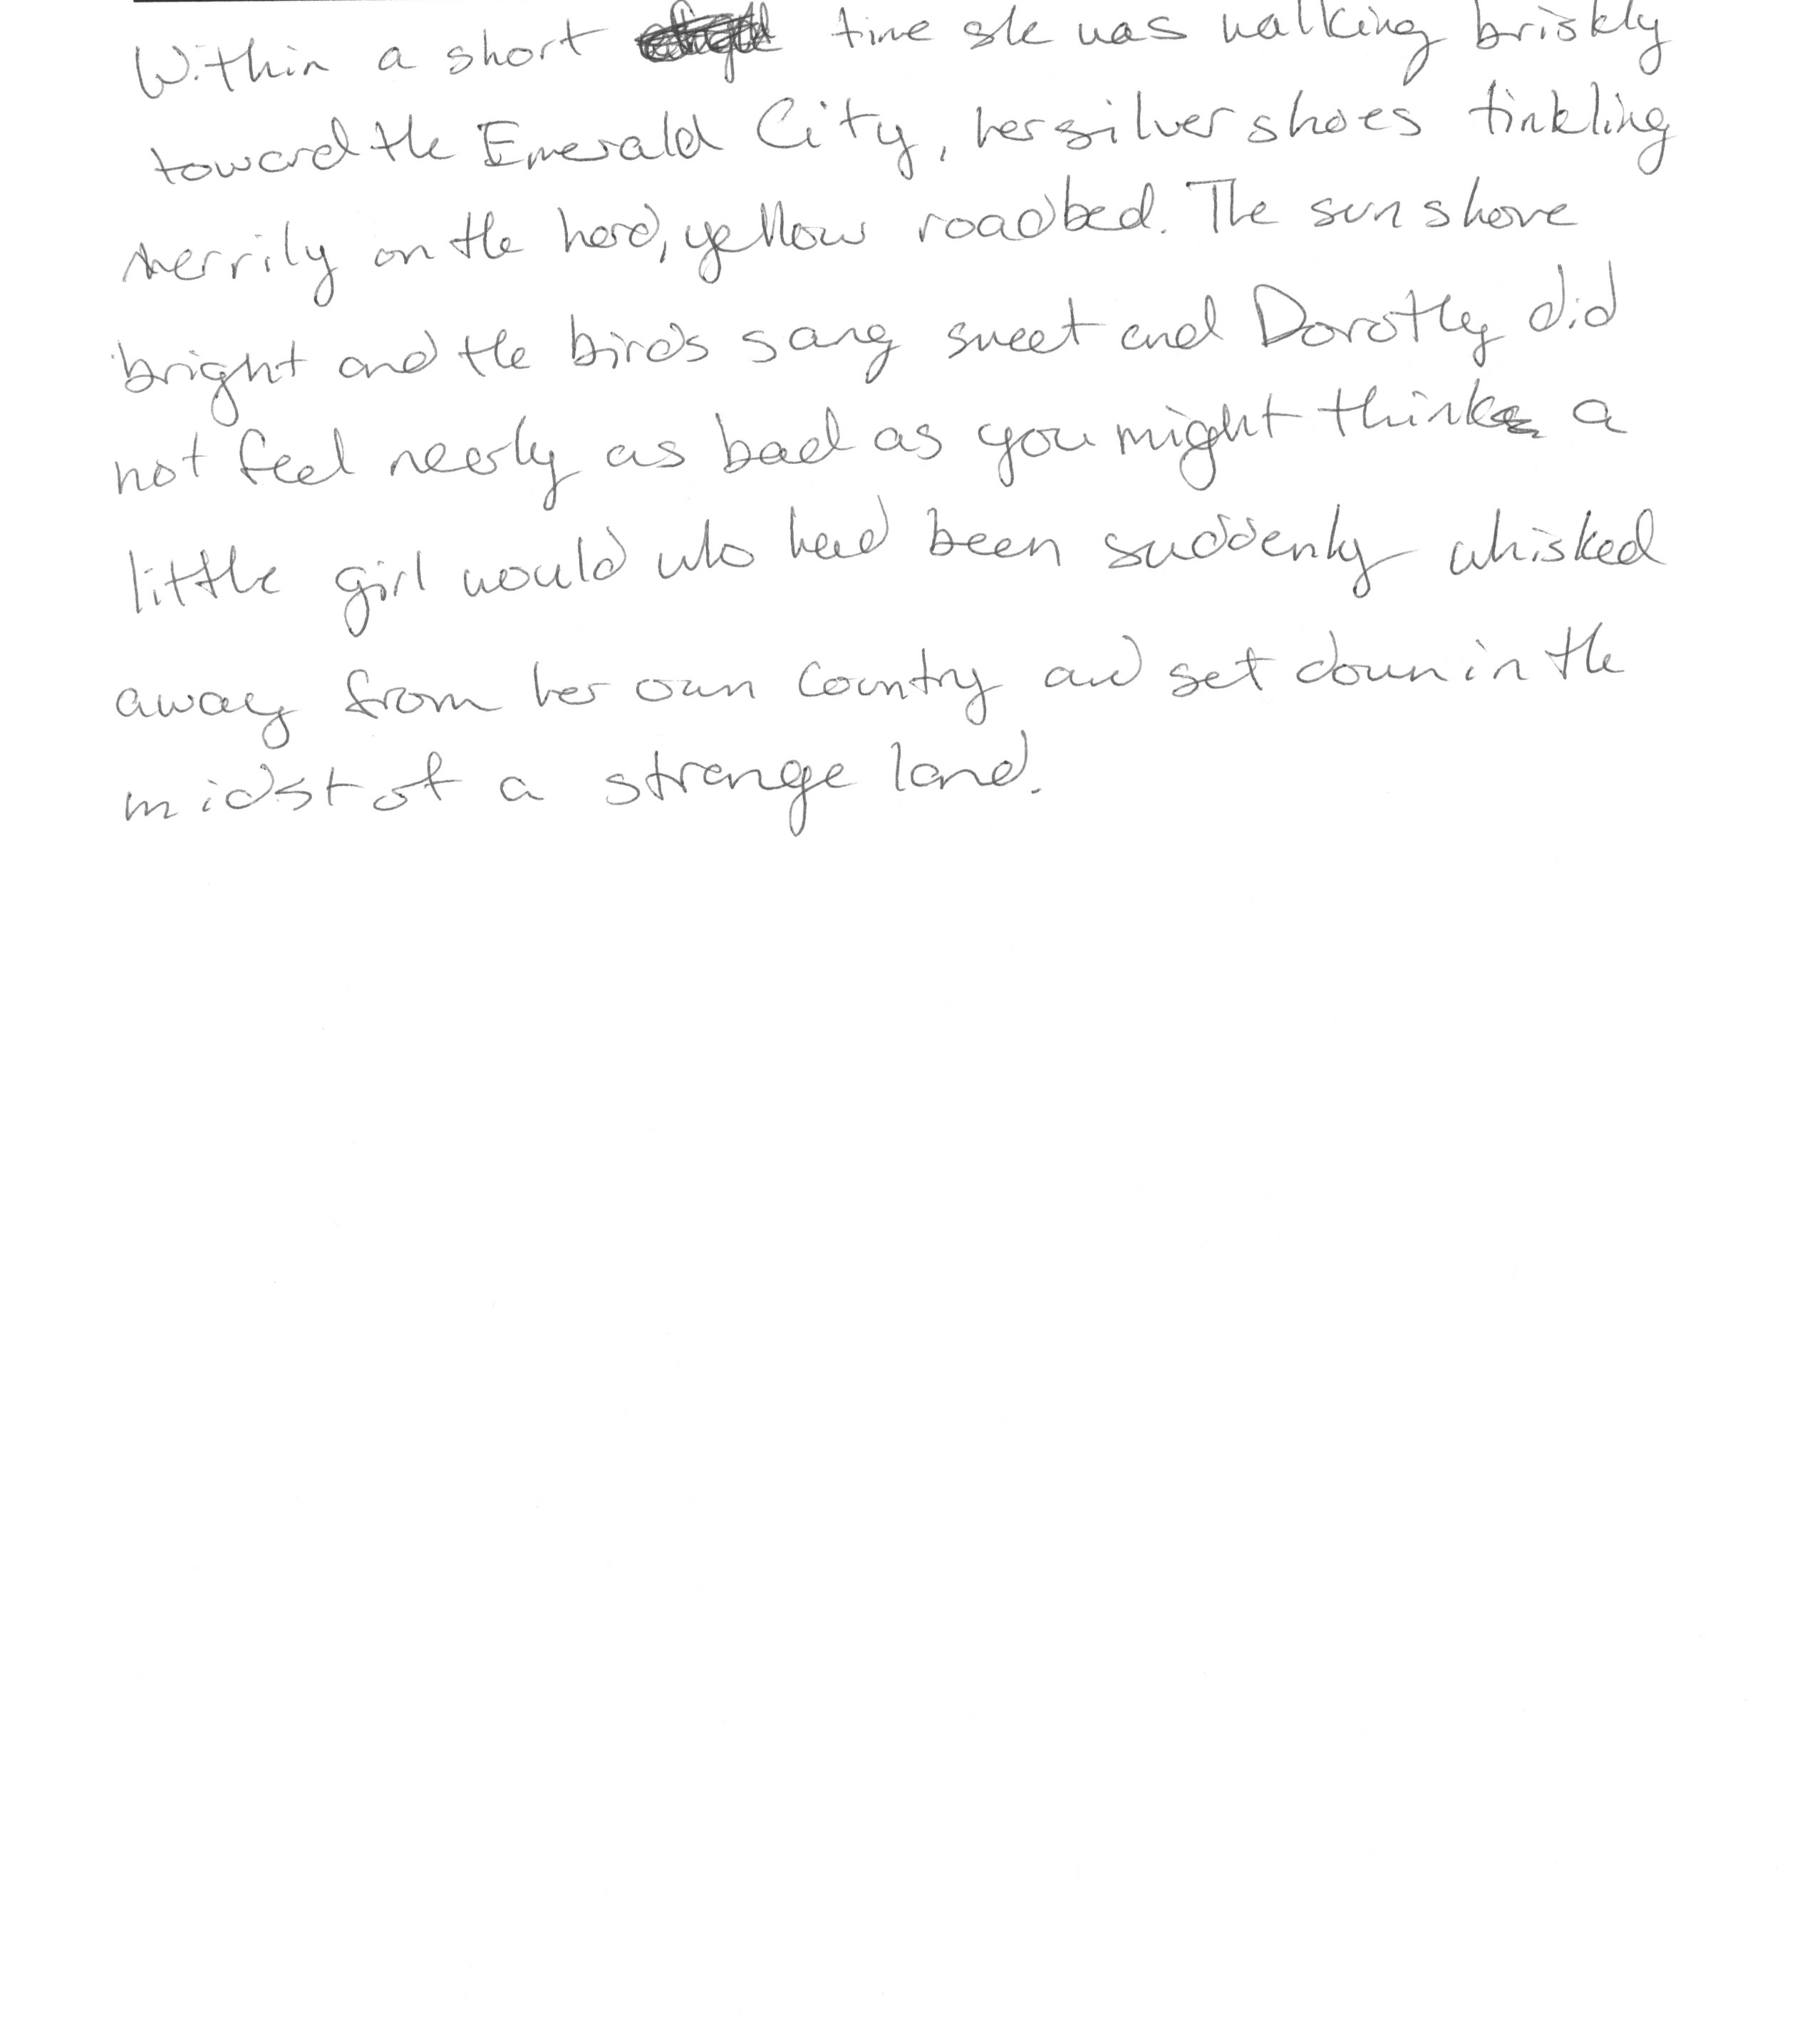 Within a short time she was walking briskly
toward the Emerald City, her silver shoes tinkling
merrily on the hard, yellow roadbed. The sun shone
bright and the birds sang sweet and Dorothy did
not feel nearly as bad as you might think a
little girl would who had been suddenly whisked
away from her own country and set down in the
midst of a strange land.